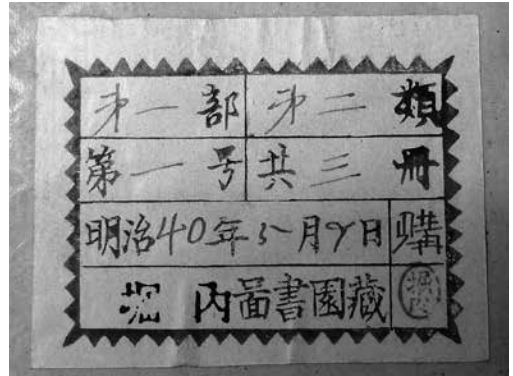 第一部 第二類
第一号 共三冊
明治40年5月9日 購
堀内圖書園藏
堀内